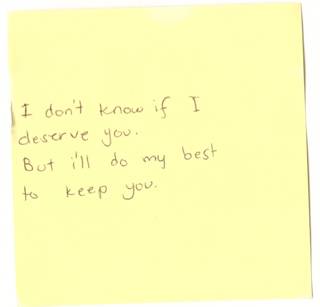 I don't know if I
deserve you.
But i'll do my best
to keep you.